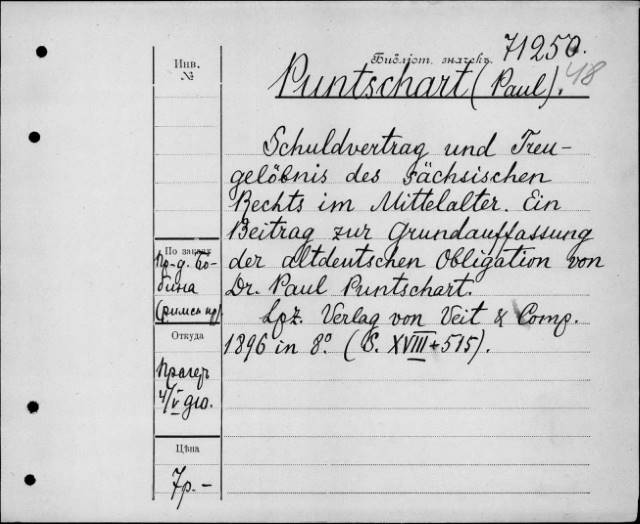 71250.
Библіот. значекъ.
48
Инв.
№
Puntschart (Paul).
Schuldvertrag und Treu-
gelöbnis des sächsischen
Rechts im Mittelalter. Ein
Beitrag zur Grundauffassung
der altdeutschen Obligation von
Dr. Paul Puntschart.
Lpz. Verlag von Veit & Comp.
1896 in 8°. (S. XVIII + 515).
По заказу
Пр-д.
Откуда
Прагеръ
4/V 910.
Цѣна
7р. -